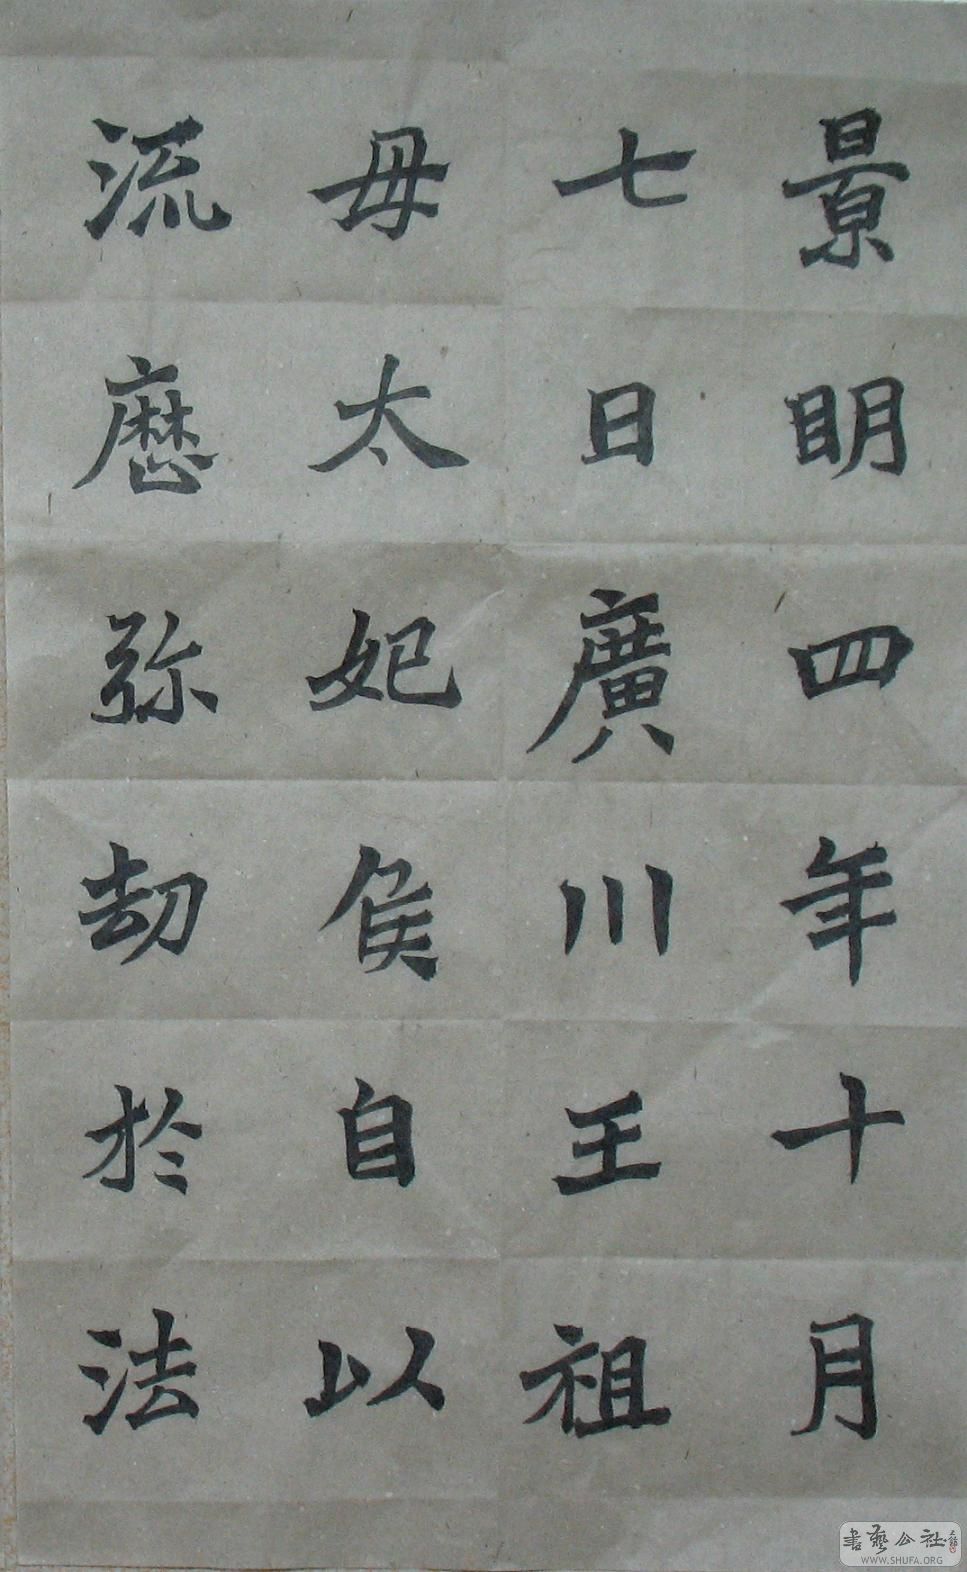 景明四年十月
七日廣川王祖
母太妃侯自以
流歷弥劫於法
書藝公社
WWW.SHUFA.ORG